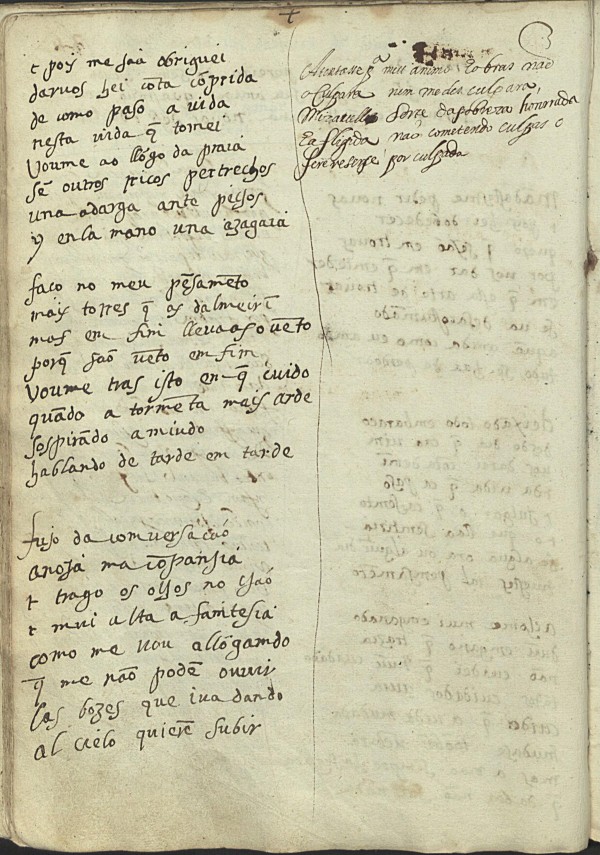 e pois me ja obriguei
darvos hei cõta cõprida
de como paso a vida
nesta vida q̃ tomei
voume ao lõgo da praia
sẽ outros ricos pertrechos
una adarga ante pechos
y en la mano una azagaia
faço no meu pẽsamẽto
mais torres q̃ as dalmeirĩ
mas em fim llevaas o vẽto
porq̃ saõ vẽto em fim
voume tras isto en q̃ cuido
quãdo a tormẽta mais arde
sospirãdo a miudo
hablando de tarde em tarde
fujo da comversaçaõ
anoja ma cõpanhia
e trago os olhos no chaõ
e mui alta a famtesia
como me vou allõgamdo
q̃ me naõ podẽ ouvir
las bozes que iva dando
al cielo quierẽ subir
meu animo e obras nao
o culpara num me des culpara,
sorte da pobreza honorada
nao cometendo culpas e
por culpada